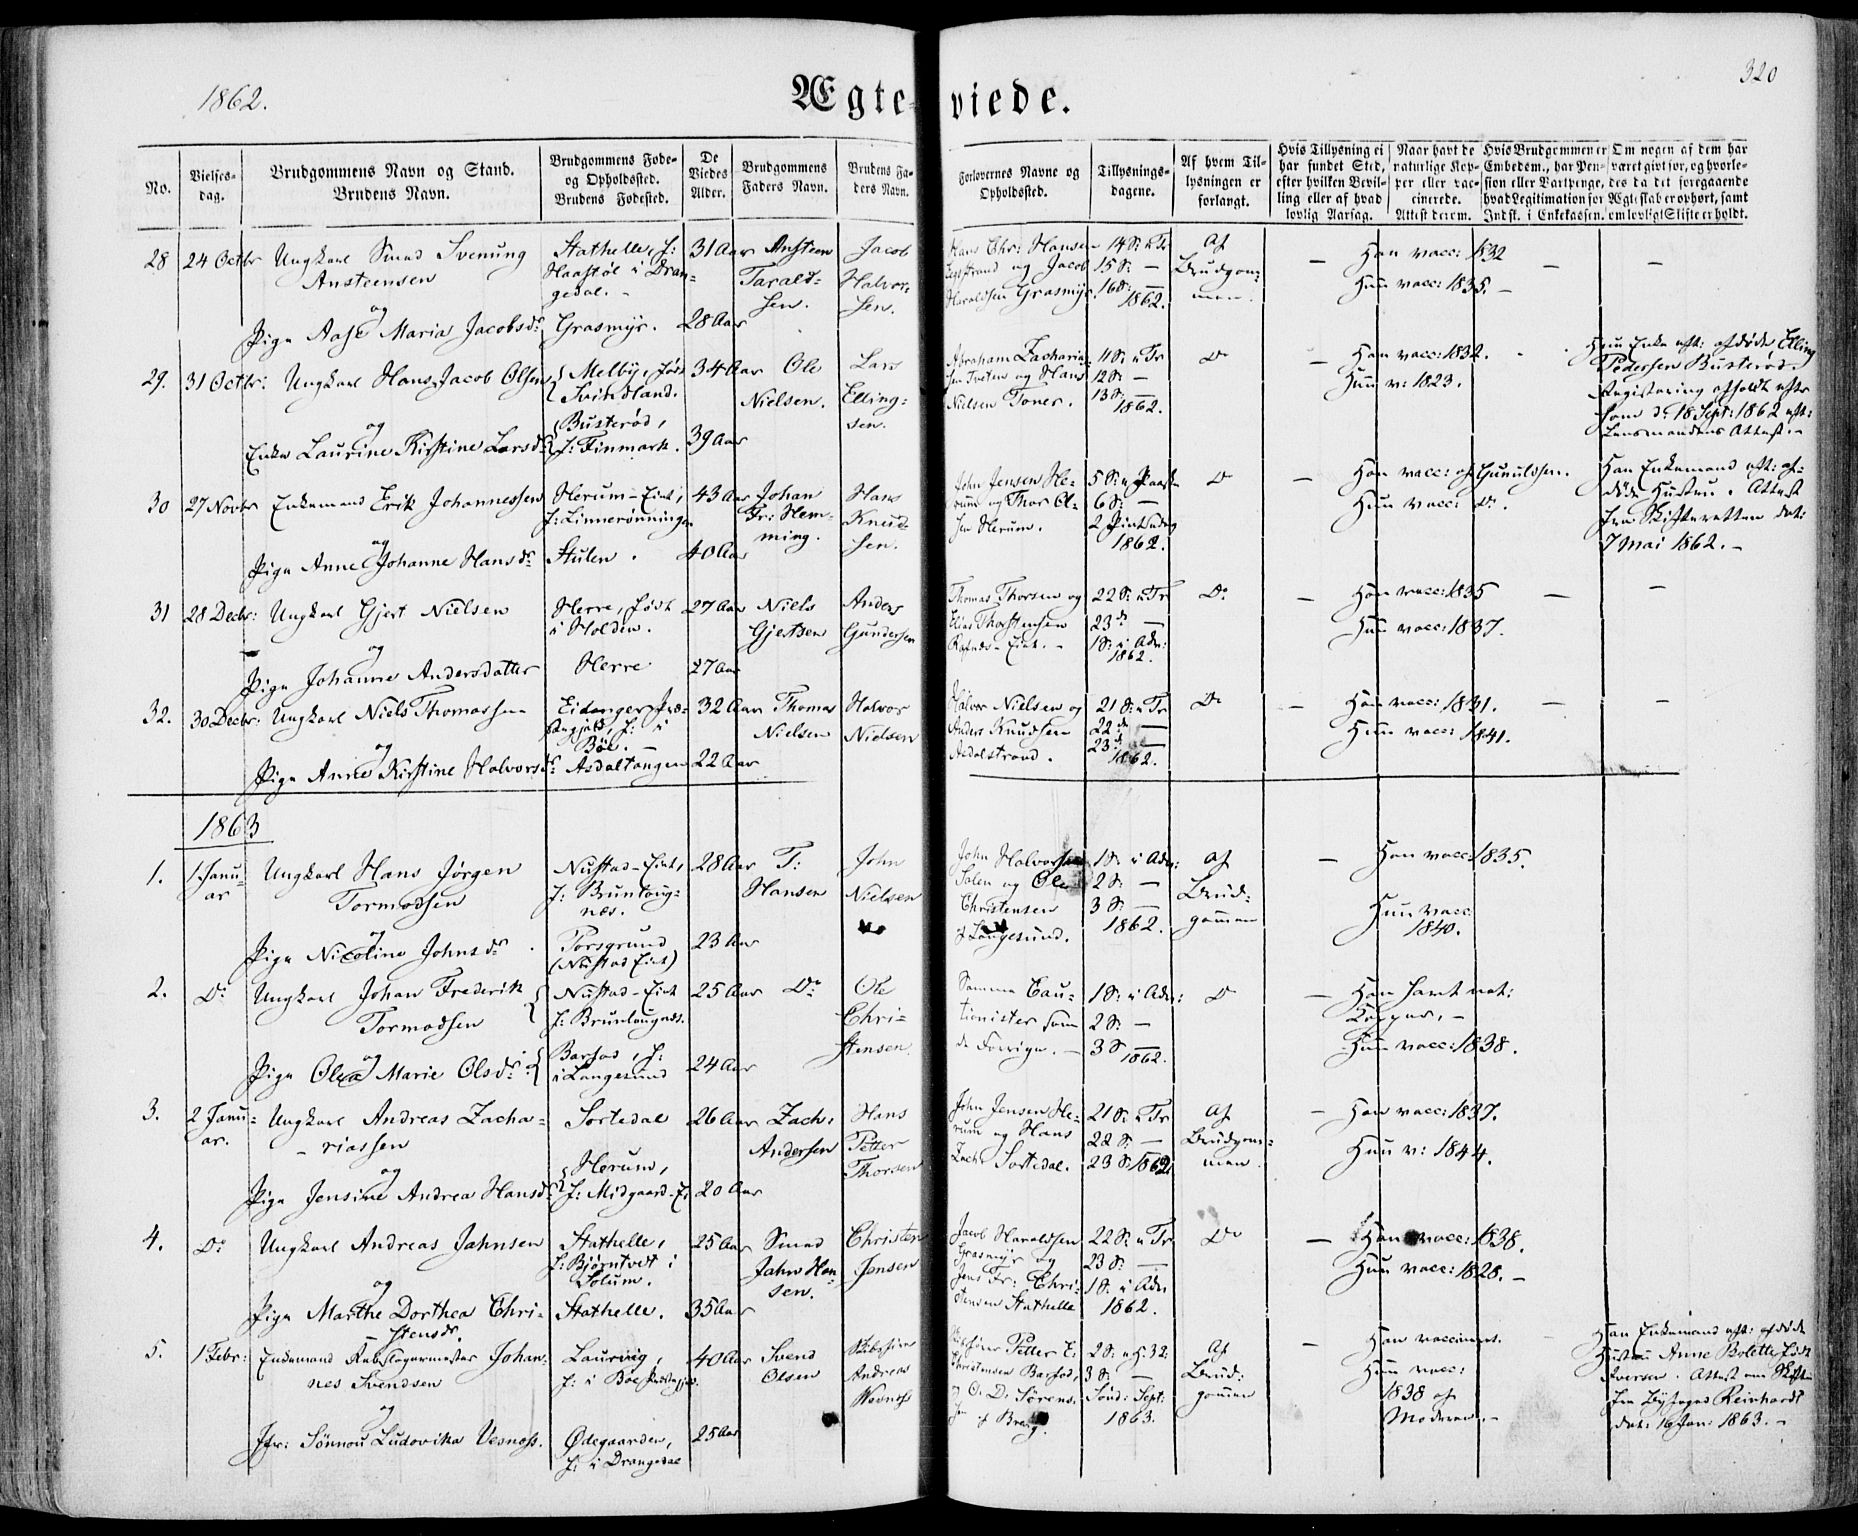 1862.
Ægte-viede.
320
No.
Vielses-
dag.
Brudgommens Navn og Stand.
Brudens Navn.
Brudgommens Føde-
og Opholdssted.
Brudens Fødested.
De
Viedes
Alder.
Brudgommens
Faders Navn.
Brudens Fa-
ders Navn.
Forlovernes Navne og
Opholdssted.
Tillysnings-
dagene.
Af hvem Til-
lysningen er
forlangt.
Hvis Tillysning ei
har fundet Sted,
efter hvilken Bevil-
ling eller af hvad
lovlig Aarsag.
Naar havt de
naturlige Kop-
per eller vac-
cinerede.
Attest derom.
Hvis Brudgommen er
Embedsm., har Pen-
sion eller Vartpenge,
hvad Legitimation for
Indst. i Enkekassen.
Om nogen af dem har
været givt før, og hvorle-
des da det foregaaende
Ægteskab er ophørt, samt
om lovligt Skifte er holdt.
28
24 Octbr
Ungkarl Smed Svenung
Ansteensen
og
Pige Aase Maria Jacobsdr
Stathelle, f:
i Dran-
gedal. -
Grasmyr.
31 Aar
28 Aar
Ansteen
Tarald-
sen.
Jacob
Halvor-
sen.
Hans Chr: Hansen
og Jacob
Grasmyr.
14 S: e Tr
15 S: —
16 S: —
1862.
Af
Brudgom-
men.
—
Han vacc: 1832
Hun vacc: 1835. -
—
—
29.
31 Octbr:
Ungkarl Hans Jacob Olsen
og
Enke Laurine Kirstine Larsdr
Melby, født
Svindland.
Busterød,
f: Finmark.
34 Aar
39 Aar
Ole
Nielsen.
Lars
Elling-
sen.
Abraham Zacharia-
sen Tveten og Hans
Nielsen Toner.
11 S: e Tr
12 S: —
13 S: —
1862.
Do
—
Han vacc: 1832.
Hun v: 1823.
Hun Enke eft: afdøde Elling
Pedersen Busterød.
Registering afholdt efter
ham d: 18 Sept: 1862 eft:
Lensmandens Attest. -
30
27 Novbr
Enkemand Erik Johannessen
og
Pige Anne Johanne Hansdr
Herum-Eiet,
f: Linnerønningen
Stulen.
43 Aar
40 Aar
Johan
Fr: Hem-
ming.
Hans
Knud-
sen.
John Jensen He-
rum og Thor Ol-
sen Herum.
5 S: e Paaske
6 S: —
2 Pintsedag
1862.
Do
—
Han vacc: af Gunulssen.
Hun vacc: Do.
Han Enkemand eft: af-
døde Hustru. Attest
fra Skifteretten dat:
7 Mai 1862. -
31
28 Decbr:
Ungkarl Gjert Nielsen
og
Pige Johanne Andersdatter
Herre, født
i Holden.
Herre
27 Aar
27 Aar
Niels
Gjertsen
Anders
Gundersen
Thomas Thorsen og
Elias Thorstensen
Rafnes-Eiet. -
22 S: e Tr
23 do —
1 S: i Adv:
1862.
Do
—
Han vacc: 1835
Hun vacc: 1837.
—
—
32.
30 Decbr:
Ungkarl Niels Thomassen
og
Pige Anne Kirstine Halvorsdr
Eidanger Præ-
stegjeld, f: i
Bøe. —
Asdaltangen
32 Aar
22 Aar
Thomas
Nielsen
Halvor
Nielsen
Halvor Nielsen og
Anders Knudsen
Asdalstrand.
21 S: e Tr
22 do —
23 d —
1862.
Do
—
Han vacc: 1831.
Hun vacc: 1841.
—
—
1863
1.
1 Janu-
ar
Ungkarl Hans Jørgen
Tormodsen
og
Pige Nicoline Johnsdr
Nustad-Eiet,
f: Bruntoug-
næs.
Porsgrund
(Nustad Eiet)
28 Aar
23 Aar
T:
Hansen
John
Nielsen
John Halvorsen
Salen og Ole
Christensen
af Langesund.
1 S: i Adv:
2 S: —
3 S: —
1862.
Af
Brud-
gommen
—
Han vacc: 1835.
Hun vacc:
1840.
2.
Do
Ungkarl Johan Frederik
Tormodsen
og
Pige Olea Marie Olsdr
Nustad-Eiet
f: Bruntougnæs.
Barfod, f:
i Langesund
25 Aar
24 Aar
Do
Ole
Chri-
stensen.
Samme Cau-
tionister som
de Forrige. —
1 S: i Adv:
2 S: —
3 S —
1862.
Do
—
Han havt nat:
Kopper, -
Hun vacc: 1838.
3.
2 Janu-
ar.
Ungkarl Andreas Zacha-
riassen
og
Pige Jensine Andrea Hansdr
Sortedal
Herum,
f: Midgaard-E
26 Aar
20 Aar
Zach:
Andersen
Hans
Petter
Thorsen
John Jensen He-
rum og Hans
Zachr Sortedal.
21 S: e Tr
22 S: —
23 S: 1862
Af
Brudgom-
men.
—
Han vacc: 1837.
Hun v: 1844.
4.
Do
Ungkarl Andreas Jahnsen
og
Pige Marthe Dorthea Chri-
stensdr.
Stathelle,
f: Bjørntvedt i
Solum.
Stathelle.
25 Aar
35 Aar
Smed
Jahn Han-
sen.
Christen
Jensen
Jacob Haraldsen
Grasmyr og
Jens Fr: Chri-
stensen Stathelle
22 S: e Tr.
23 S: —
1 S: i Adv
1862.
Do
—
Han vacc: 1838.
Hun vacc: 1828. -
5.
1 Febr:
Enkemand Rebslagermester Johan-
nes Svendsen
og
Jfr: Sønnou Ludovika Vesnoss.
Laurvig,
f: i Bøe Præstegj:
Ødegaarden,
f: i Drangedal
40 Aar
25 Aar
Svend
Olsen
Andreas
Wesnoss
Petter C:
Christensen Barfod,
og O: D: Sørens-
sen af Brevig.
2 S: e H: 3 K:
3 S: —
Sønd: Sept:
1863.
Af
Brud-
gommen
Han vaccineret.
Hun vacc:
1838 af
Moderen. -
Han Enkemand eft: afdøde
Hustru Anne Bolette født
Iversen. Attest om Skifte
fra Byfoged Reinhardt
dat: 16 Jan: 1863. -